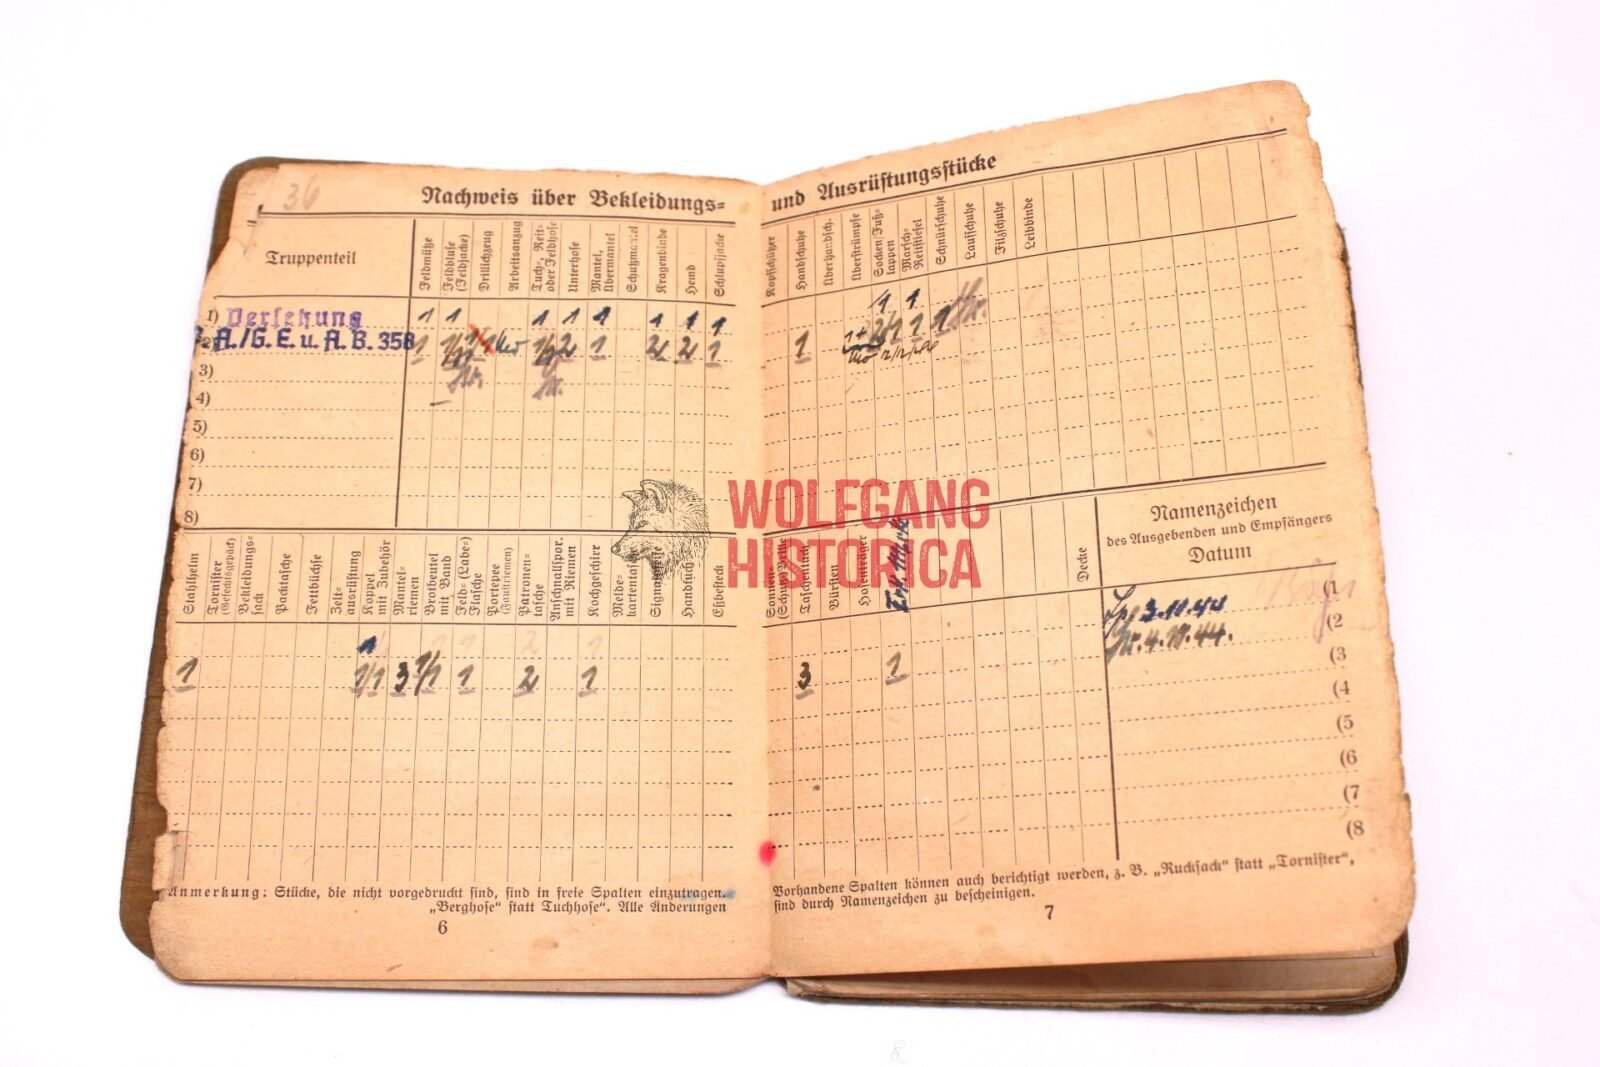 36
Nachweis über Bekleidungs-
Truppenteil
Feldmütze
Feldbluse (Feldjacke)
Drillichzeug
Arbeitsanzug
Tuch-, Reit- oder Feldhose
Unterhose
Mantel, Übermantel
Schutzmantel
Kragenbinde
Hemd
Schlupfjacke
1) Versetzung 1 1 1 1 1 1 1 1
2) A./G.E.u.A.B.358 1 2 1 2 2 1
3)
4)
5)
6)
7)
8)
Stahlhelm
Tornister (Gefechtsgepäck)
Bekleidungs-sack
Packtasche
Fettbüchse
Zelt-ausrüstung
Koppel mit Zubehör
Mantel-riemen
Brotbeutel mit Band
Feld- (Labe-) Flasche
Portepee (Faustriemen)
Patronen-tasche
Anschnallspor. mit Riemen
Kochgeschirr
Melde-kartentasche
Signalpfeife
Handtuch
Eßbesteck
1 1 2 1
1 1/1 3 1/1 1 2 1
Anmerkung: Stücke, die nicht vorgedruckt sind, sind in freie Spalten einzutragen.
„Berghose“ statt Tuchhose“. Alle Änderungen
6
und Ausrüstungsstücke
Kopfschützer
Handschuhe
Überhandsch.
Überstrümpfe
Socken/Fuß-lappen
Marsch- Reitstiefel
Schnürschuhe
Laufschuhe
Filzschuhe
Leibbinde
1 1
1 1+ 2/1 1 1
Sonnen- (Schutz) Brille
Taschentuch
Bürsten
Hosenträger
Erk. Marke
Decke
Namenzeichen
des Ausgebenden und Empfängers
Datum
3.11.44 (1
4.11.44. (2
3 1 (3
(4
(5
(6
(7
(8
Vorhandene Spalten können auch berichtigt werden, z. B. „Rucksack“ statt „Tornister“,
sind durch Namenzeichen zu bescheinigen.
7
WOLFGANG
HISTORICA